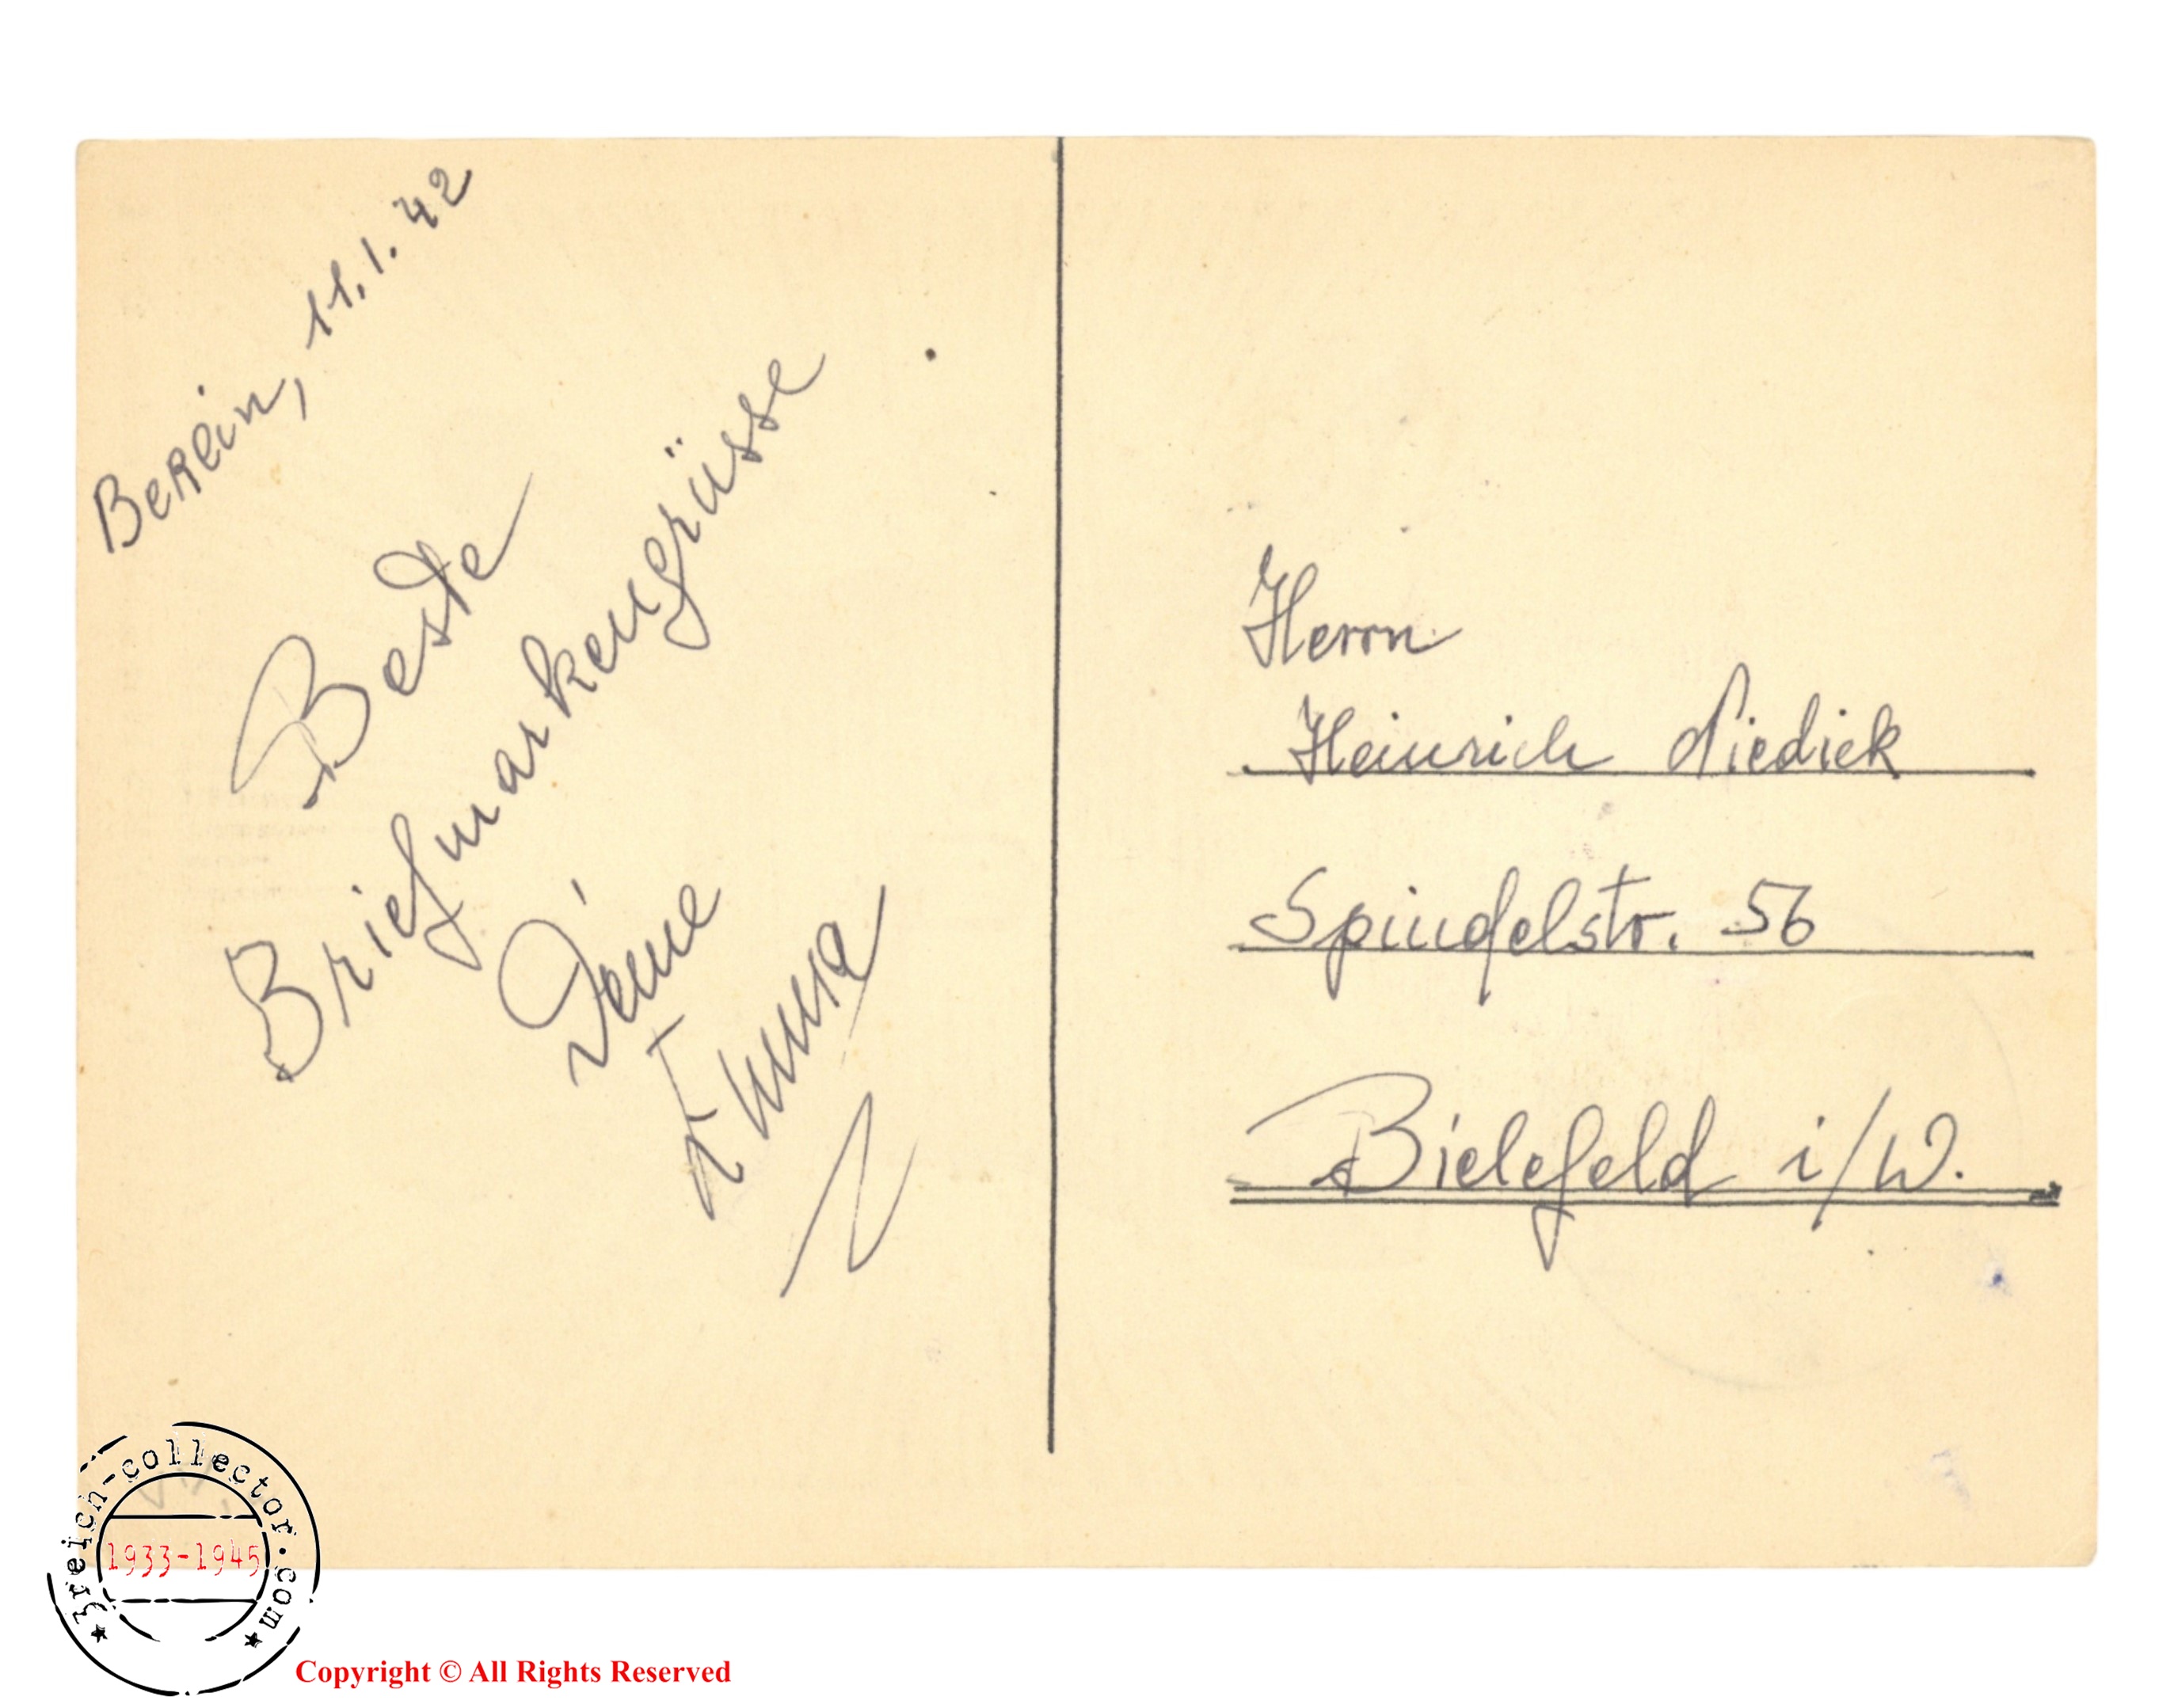 Berlin, 11.1.42
Beste
Briefmarkengrüsse
Deine
Herrn
Heinrich Diediek
Spindelstr. 56
Bielefeld i/W.
3reich-collector.com
1933-1945
Copyright © All Rights Reserved